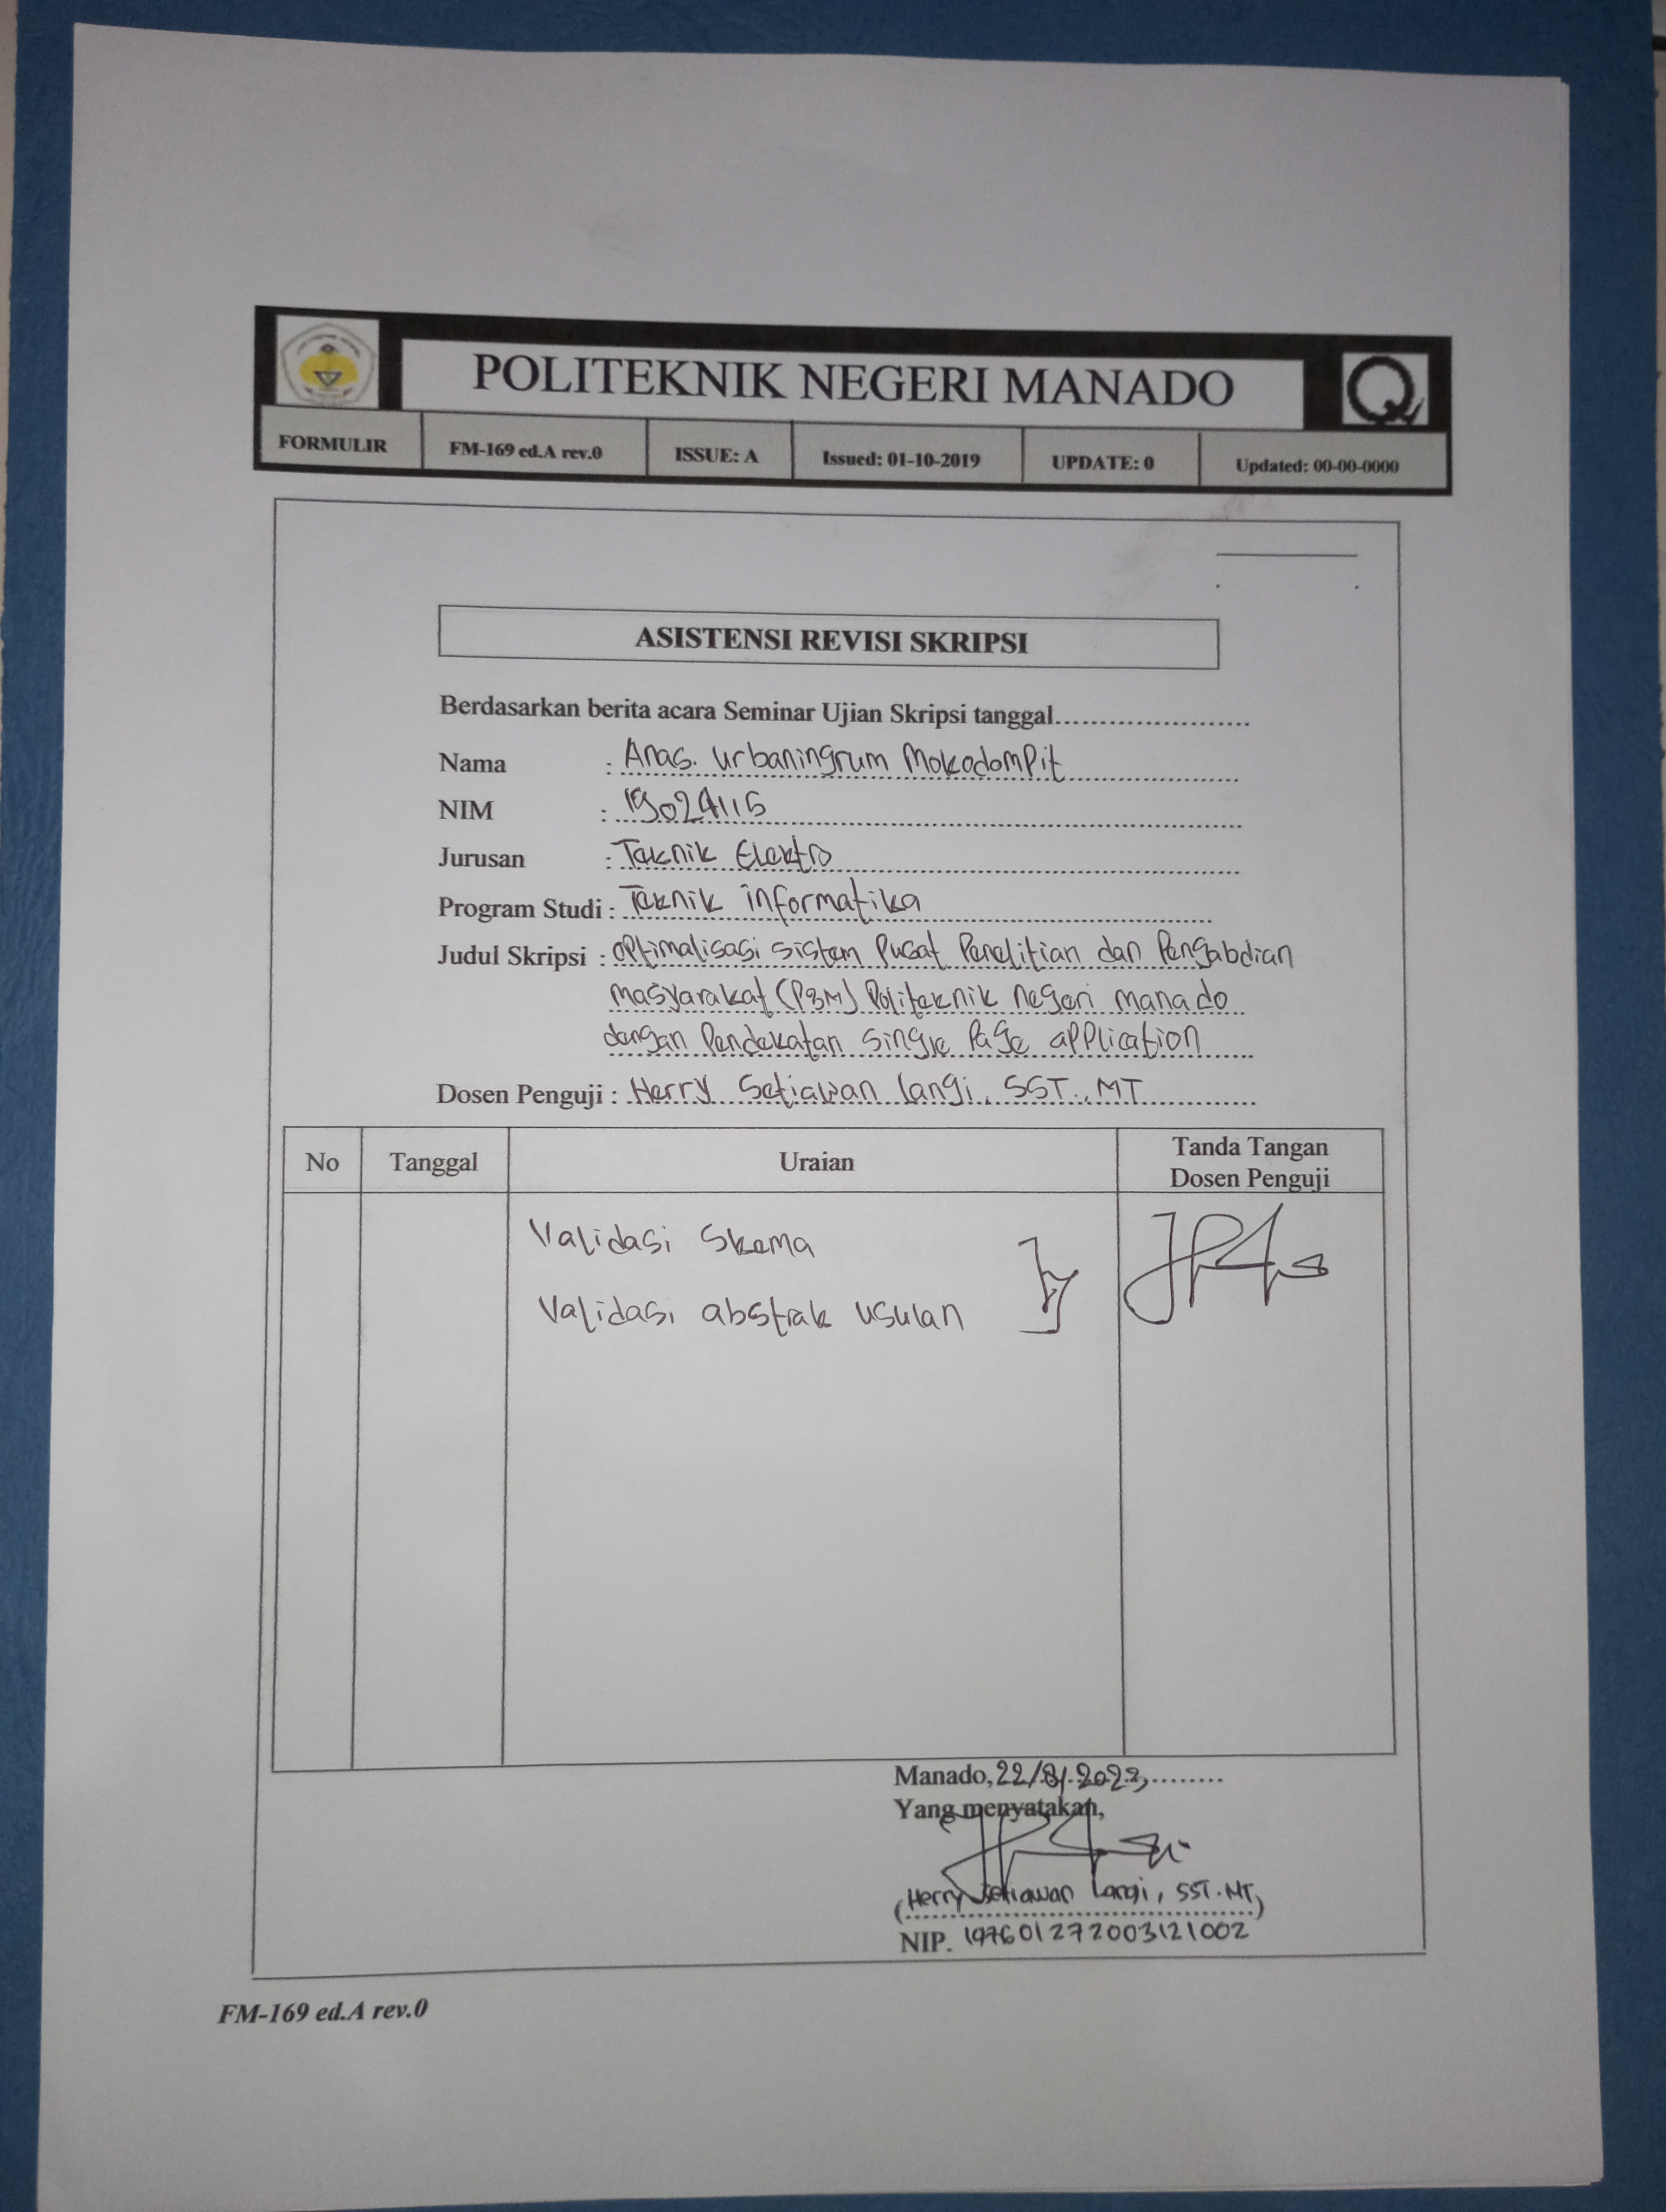 POLITEKNIK NEGERI MANADO
FORMULIR FM-169 ed.A rev.0 ISSUE: A Issued: 01-10-2019 UPDATE: 0 Updated: 00-00-0000
ASISTENSI REVISI SKRIPSI
Berdasarkan berita acara Seminar Ujian Skripsi tanggal......................
Nama : Anas. Urbaningrum Mokodompit
NIM : 19024115
Jurusan : Teknik Elektro
Program Studi : Teknik informatika
Judul Skripsi : Optimalisasi sistem Pusat Penelitian dan Pengabdian
masyarakat (P3M) Politeknik negeri manado
dengan Pendekatan Single Page application
Dosen Penguji : Herry Setiawan Langi, SST., MT
No Tanggal Uraian Tanda Tangan
Dosen Penguji
Validasi Skema
Validasi abstrak usulan
Manado, 22/8/2023
Yang menyatakan,
(Herry Setiawan Langi, SST. MT)
NIP. 197601272003121002
FM-169 ed.A rev.0